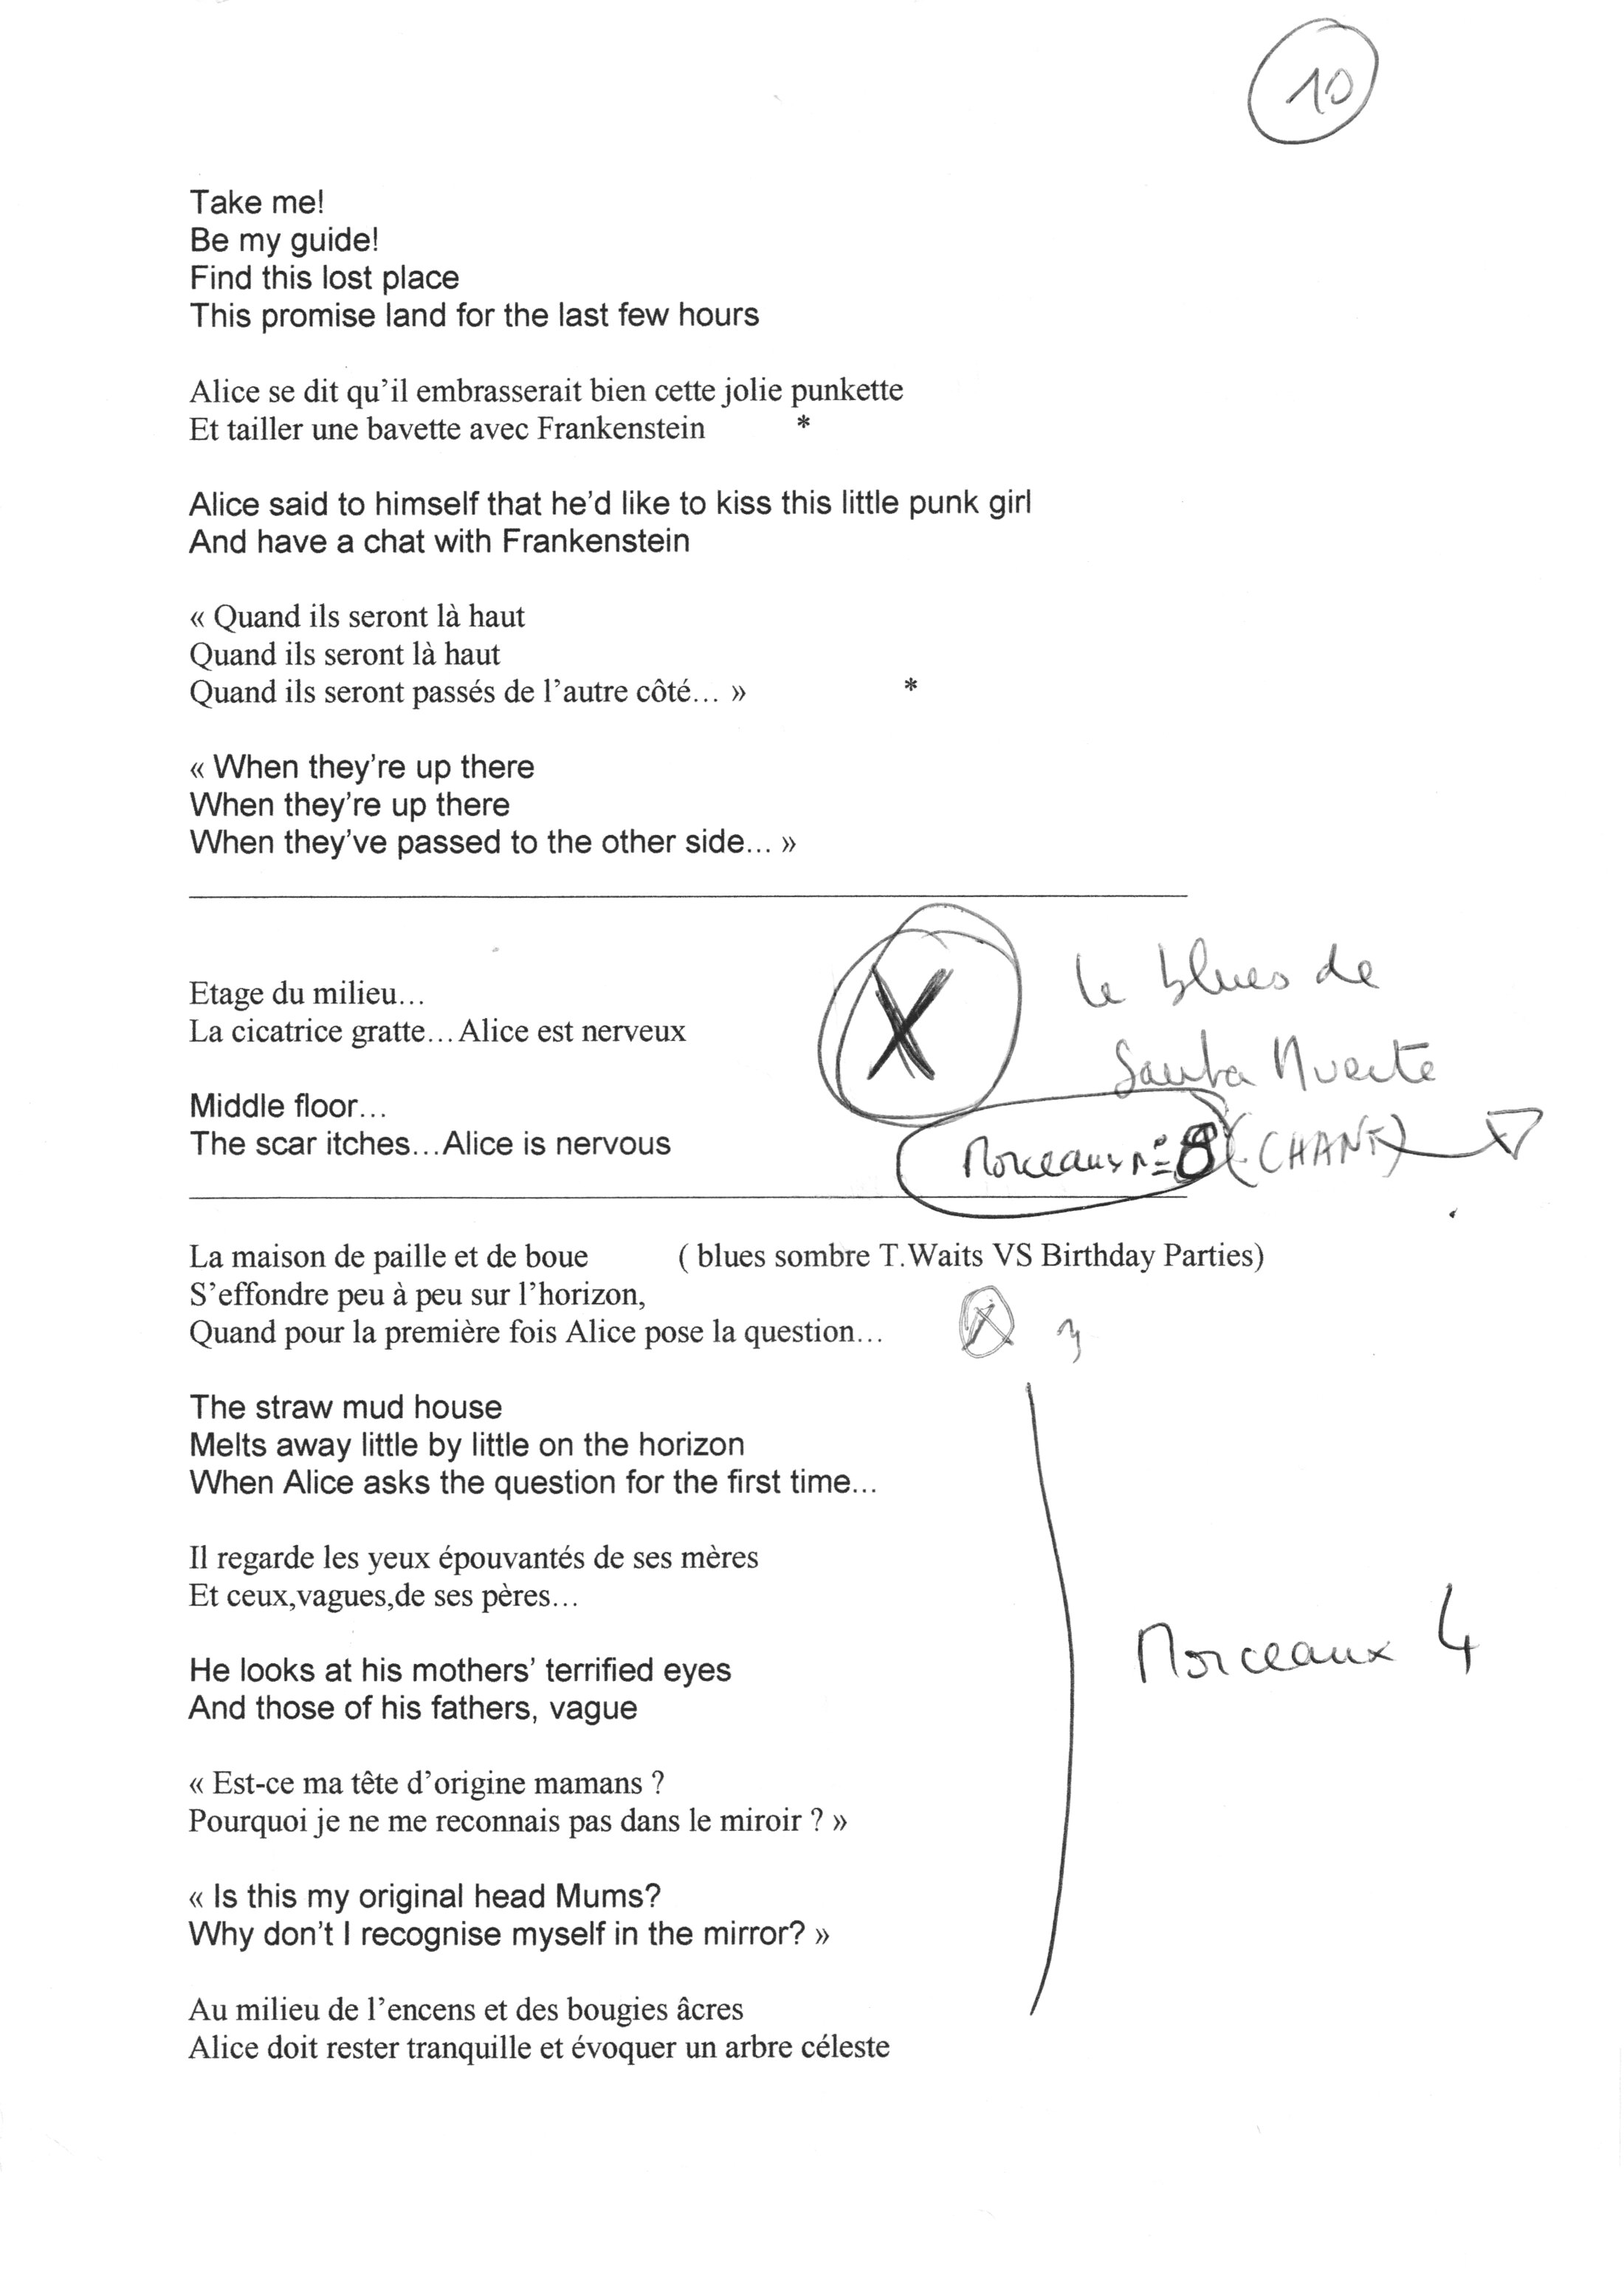 10
Take me!
Be my guide!
Find this lost place
This promise land for the last few hours
Alice se dit qu’il embrasserait bien cette jolie punkette
Et tailler une bavette avec Frankenstein *
Alice said to himself that he’d like to kiss this little punk girl
And have a chat with Frankenstein
« Quand ils seront là haut
Quand ils seront là haut
Quand ils seront passés de l’autre côté… » *
« When they’re up there
When they’re up there
When they’ve passed to the other side… »
X
le blues de
Santa Muerte
Etage du milieu…
La cicatrice gratte…Alice est nerveux
Middle floor…
The scar itches…Alice is nervous
Morceaux n° 8 (CHANT)
La maison de paille et de boue ( blues sombre T.Waits VS Birthday Parties)
S’effondre peu à peu sur l’horizon,
Quand pour la première fois Alice pose la question… X
The straw mud house
Melts away little by little on the horizon
When Alice asks the question for the first time…
Il regarde les yeux épouvantés de ses mères
Et ceux,vagues,de ses pères…
He looks at his mothers’ terrified eyes
And those of his fathers, vague
Morceaux 4
« Est-ce ma tête d’origine mamans ?
Pourquoi je ne me reconnais pas dans le miroir ? »
« Is this my original head Mums?
Why don’t I recognise myself in the mirror? »
Au milieu de l’encens et des bougies âcres
Alice doit rester tranquille et évoquer un arbre céleste